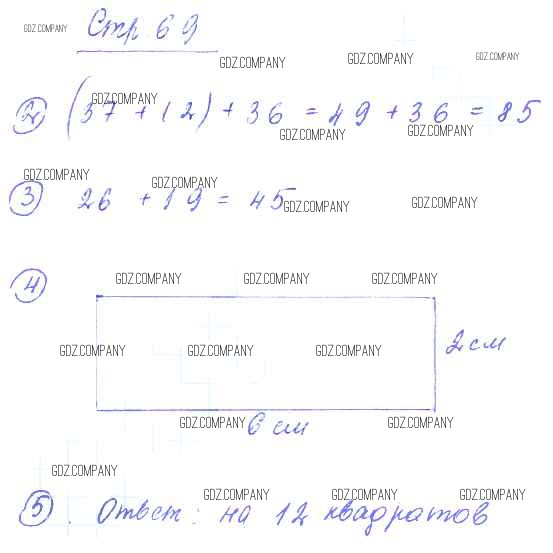 Стр 69
GDZ.COMPANY GDZ.COMPANY GDZ.COMPANY GDZ.COMPANY
② (37 + 12) + 36 = 49 + 36 = 85
GDZ.COMPANY GDZ.COMPANY GDZ.COMPANY
GDZ.COMPANY GDZ.COMPANY
③ 26 + 19 = 45
GDZ.COMPANY GDZ.COMPANY
④
GDZ.COMPANY GDZ.COMPANY GDZ.COMPANY
2 см
GDZ.COMPANY GDZ.COMPANY GDZ.COMPANY
6 см
GDZ.COMPANY GDZ.COMPANY
GDZ.COMPANY
GDZ.COMPANY GDZ.COMPANY GDZ.COMPANY
⑤. Ответ: на 12 квадратов